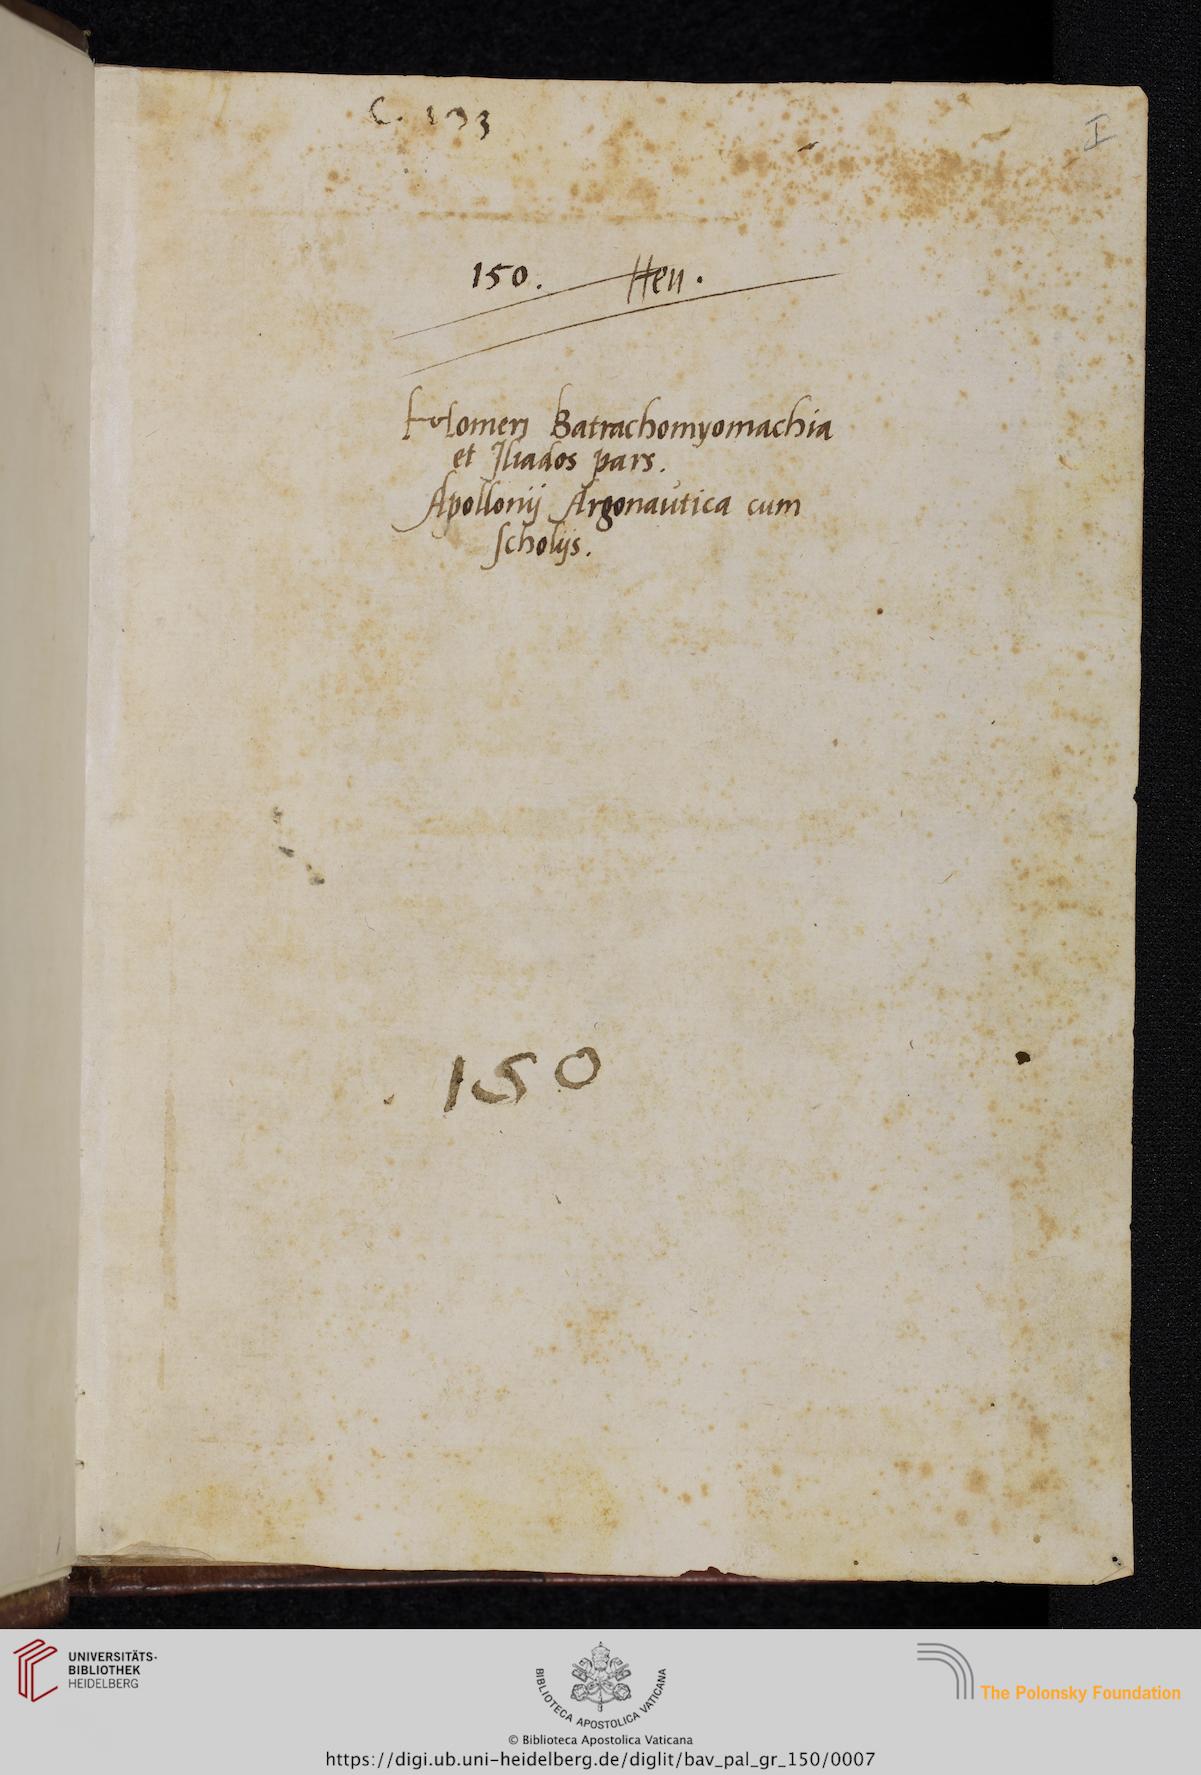 C. 193
I
150. Hen.
Homerj Batrachomyomachia
et Iliados pars.
Apollonij Argonautica cum
scholijs.
150
UNIVERSITÄTS-
BIBLIOTHEK
HEIDELBERG
BIBLIOTECA APOSTOLICA VATICANA
© Biblioteca Apostolica Vaticana
The Polonsky Foundation
https://digi.ub.uni-heidelberg.de/diglit/bav_pal_gr_150/0007